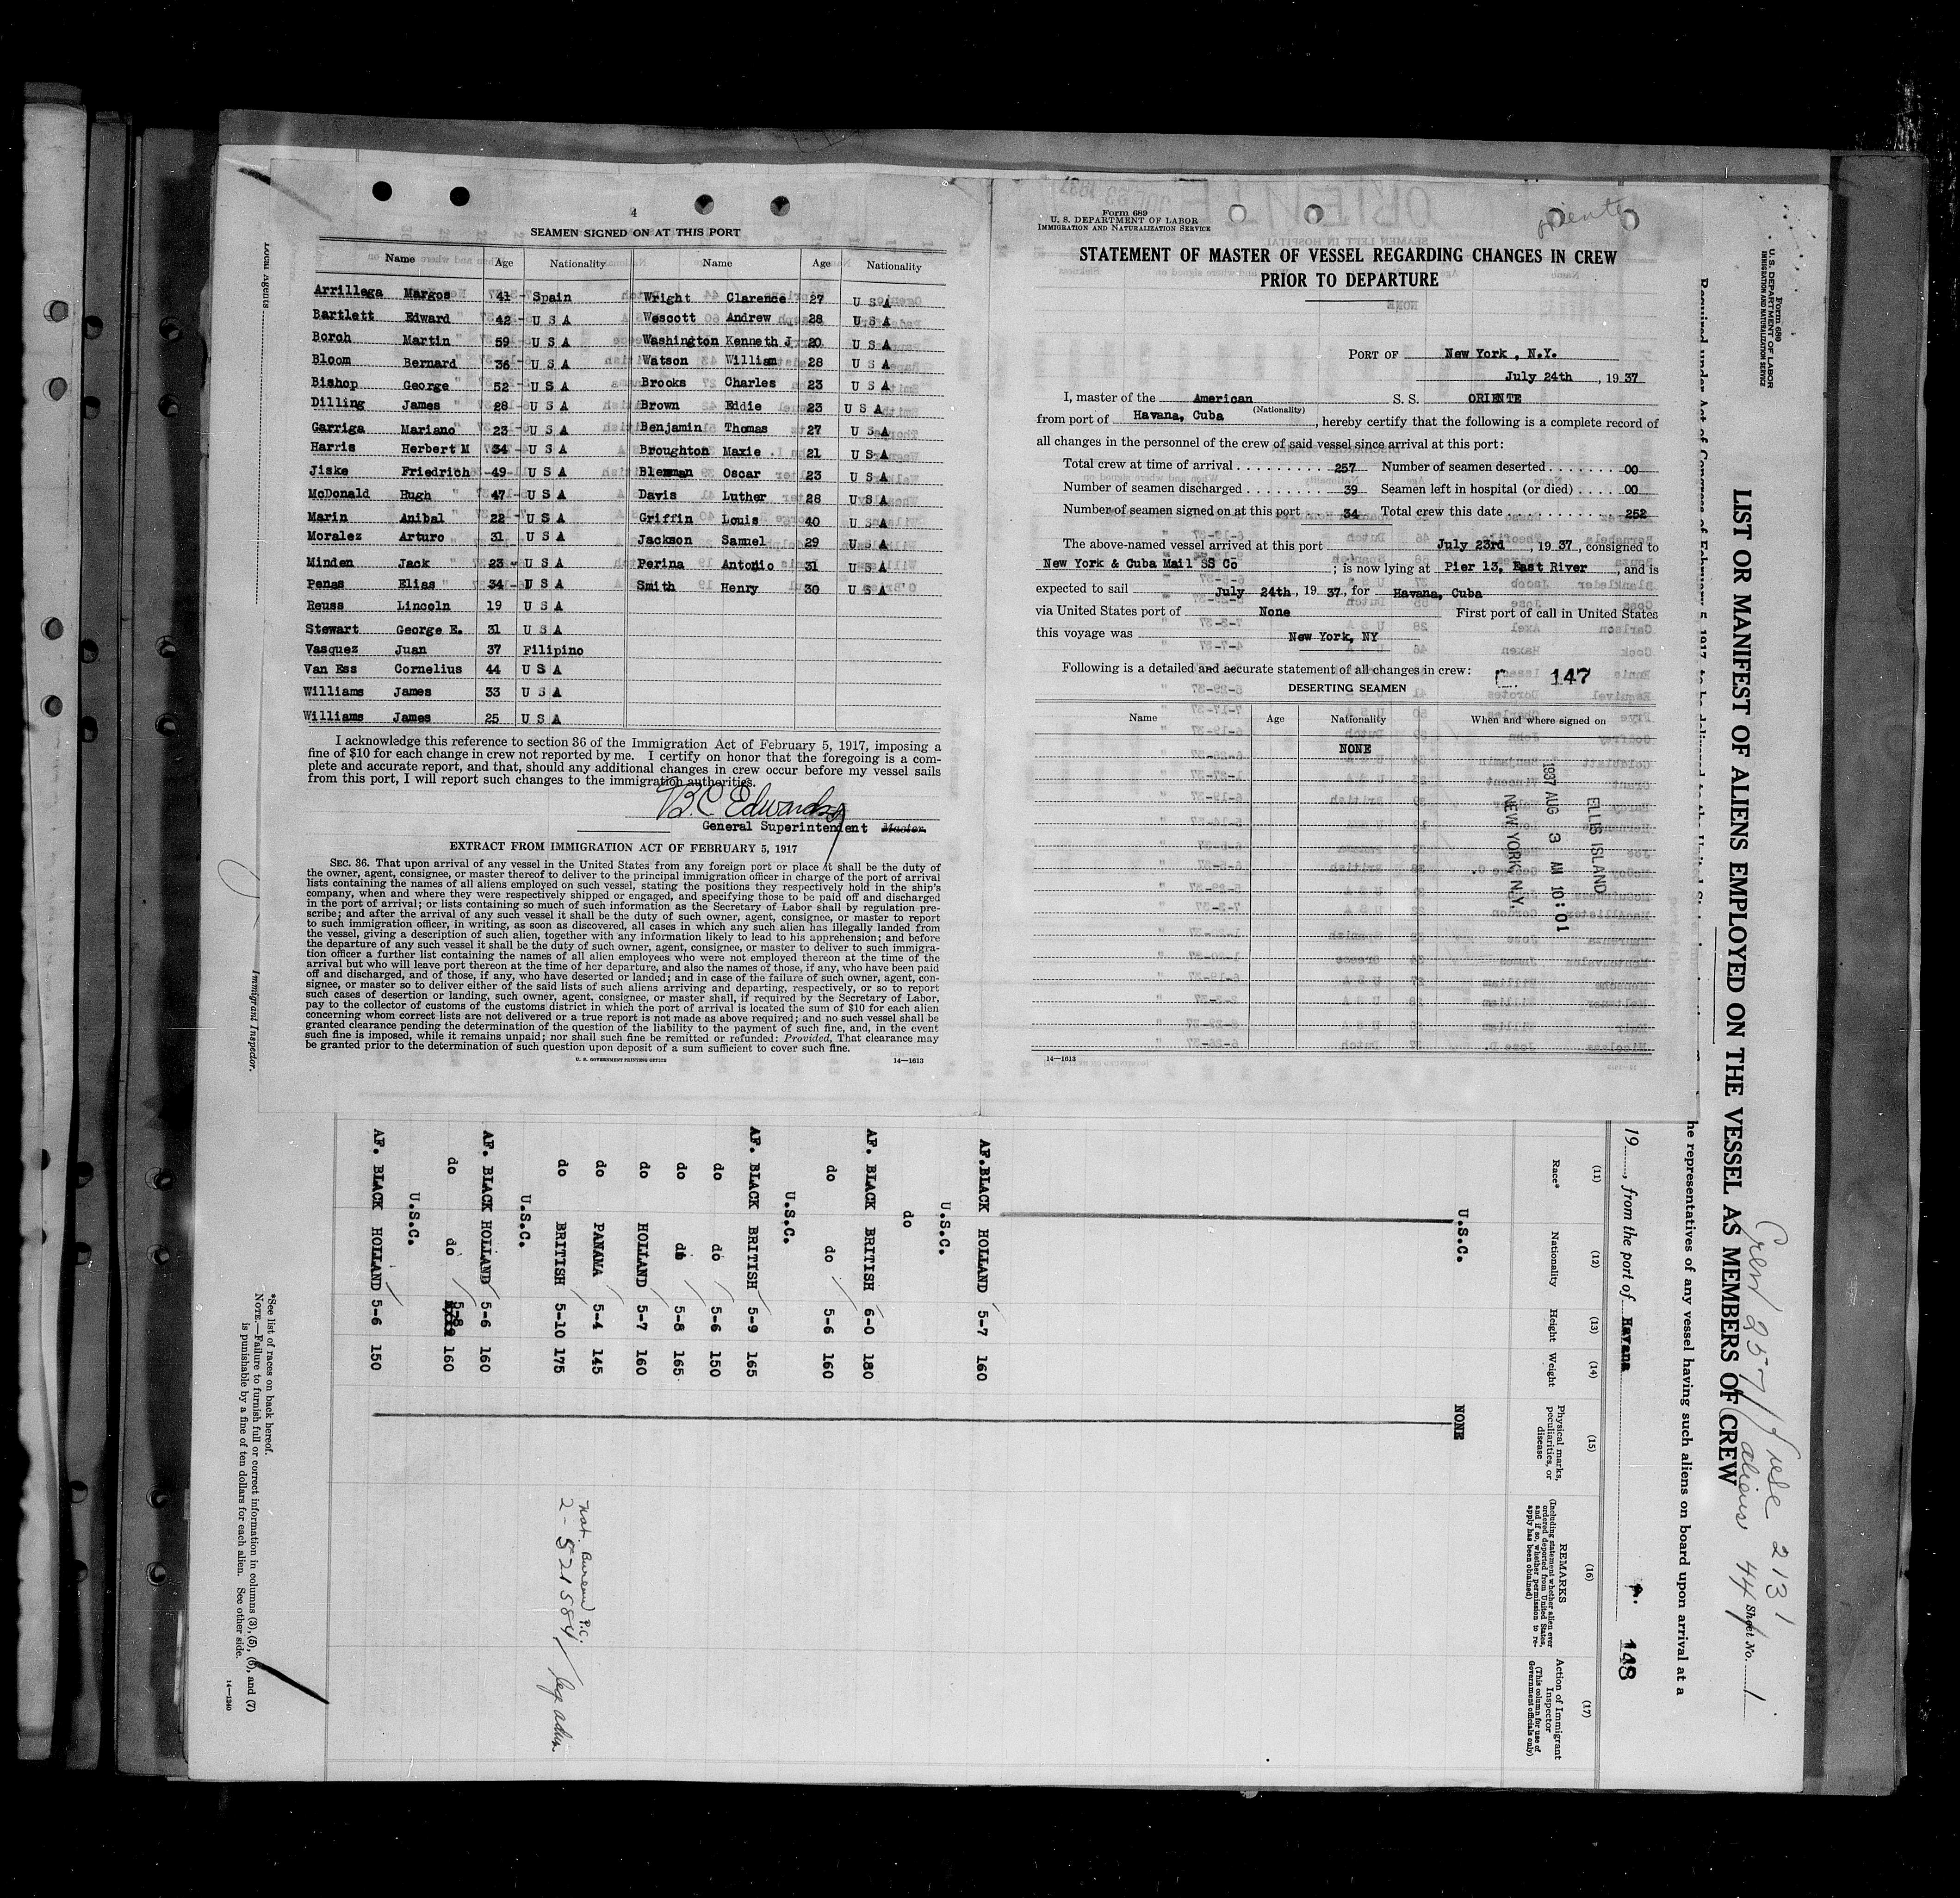 4
SEAMEN SIGNED ON AT THIS PORT
Name Age Nationality Name Age Nationality
Arrillega Margos 41 Spain Wright Clarence 27 U S A
Bartlett Edward 42 U S A Wescott Andrew 28 U S A
Borch Martin 59 U S A Washington Kenneth J 20 U S A
Bloom Bernard 36 U S A Watson William 28 U S A
Bishop George 52 U S A Brooks Charles 23 U S A
Dilling James 28 U S A Brown Eddie 23 U S A
Garriga Mariano 23 U S A Benjamin Thomas 27 U S A
Harris Herbert M 34 U S A Broughton Maxie 21 U S A
Jiske Friedrich 49 U S A Blenman Oscar 23 U S A
McDonald Hugh 47 U S A Davis Luther 28 U S A
Marin Anibal 22 U S A Griffin Louis 40 U S A
Moralez Arturo 31 U S A Jackson Samuel 29 U S A
Minden Jack 23 U S A Perina Antonio 31 U S A
Penas Elias 34 U S A Smith Henry 30 U S A
Reuss Lincoln 19 U S A
Stewart George E. 31 U S A
Vasquez Juan 37 Filipino
Van Ess Cornelius 44 U S A
Williams James 33 U S A
Williams James 25 U S A
I acknowledge this reference to section 36 of the Immigration Act of February 5, 1917, imposing a
fine of $10 for each change in crew not reported by me. I certify on honor that the foregoing is a com-
plete and accurate report, and that, should any additional changes in crew occur before my vessel sails
from this port, I will report such changes to the immigration authorities.
B.C Edwards
General Superintendent Master.
EXTRACT FROM IMMIGRATION ACT OF FEBRUARY 5, 1917
SEC. 36. That upon arrival of any vessel in the United States from any foreign port or place it shall be the duty of
the owner, agent, consignee, or master thereof to deliver to the principal immigration officer in charge of the port of arrival
lists containing the names of all aliens employed on such vessel, stating the positions they respectively hold in the ship's
company, when and where they were respectively shipped or engaged, and specifying those to be paid off and discharged
in the port of arrival; or lists containing so much of such information as the Secretary of Labor shall by regulation pre-
scribe; and after the arrival of any such vessel it shall be the duty of such owner, agent, consignee, or master to report
to such immigration officer, in writing, as soon as discovered, all cases in which any such alien has illegally landed from
the vessel, giving a description of such alien, together with any information likely to lead to his apprehension; and before
the departure of any such vessel it shall be the duty of such owner, agent, consignee, or master to deliver to such immigra-
tion officer a further list containing the names of all alien employees who were not employed thereon at the time of the
arrival but who will leave port thereon at the time of her departure, and also the names of those, if any, who have been paid
off and discharged, and of those, if any, who have deserted or landed; and in case of the failure of such owner, agent, con-
signee, or master so to deliver either of the said lists of such aliens arriving and departing, respectively, or so to report
such cases of desertion or landing, such owner, agent, consignee, or master shall, if required by the Secretary of Labor,
pay to the collector of customs of the customs district in which the port of arrival is located the sum of $10 for each alien
concerning whom correct lists are not delivered or a true report is not made as above required; and no such vessel shall be
granted clearance pending the determination of the question of the liability to the payment of such fine, and, in the event
such fine is imposed, while it remains unpaid; nor shall such fine be remitted or refunded: Provided, That clearance may
be granted prior to the determination of such question upon deposit of a sum sufficient to cover such fine.
U. S. GOVERNMENT PRINTING OFFICE 14—1613
Local Agents
Immigrant Inspector.
Form 689
U. S. DEPARTMENT OF LABOR
IMMIGRATION AND NATURALIZATION SERVICE
Oriente
STATEMENT OF MASTER OF VESSEL REGARDING CHANGES IN CREW
PRIOR TO DEPARTURE
PORT OF New York, N.Y.
July 24th, 1937
I, master of the American S. S. ORIENTE
(Nationality)
from port of Havana, Cuba, hereby certify that the following is a complete record of
all changes in the personnel of the crew of said vessel since arrival at this port:
Total crew at time of arrival 257 Number of seamen deserted 00
Number of seamen discharged 39 Seamen left in hospital (or died) 00
Number of seamen signed on at this port 34 Total crew this date 252
The above-named vessel arrived at this port July 23rd, 1937, consigned to
New York & Cuba Mail SS Co; is now lying at Pier 13, East River, and is
expected to sail July 24th, 1937, for Havana, Cuba
via United States port of None First port of call in United States
this voyage was New York, NY
Following is a detailed and accurate statement of all changes in crew:
147
DESERTING SEAMEN
Name Age Nationality When and where signed on
NONE
ELLIS ISLAND
1937 AUG 3 AM 10:01
NEW YORK, N.Y.
14—1613
Form 689
U. S. DEPARTMENT OF LABOR
IMMIGRATION AND NATURALIZATION SERVICE
LIST OR MANIFEST OF ALIENS EMPLOYED ON THE VESSEL AS MEMBERS OF CREW
Crew 257/ aliens 44/
213
Sheet No. 1
Required under Act of Congress of February 5, 1917, to be delivered to the United
he representatives of any vessel having such aliens on board upon arrival at a
19, from the port of Havana
148
(11) (12) (13) (14) (15) (16) (17)
Race* Nationality Height Weight
Physical marks, peculiarities, or disease
REMARKS
(Including statement whether alien ever ordered deported from United States, and if so, whether permission to re-apply has been obtained)
Action of Immigrant Inspector
(This column for use of Government officials only)
U.S.C. NONE
AF.BLACK HOLLAND 5-7 160
U.S.C.
do
AF. BLACK BRITISH 6-0 180
do do 5-6 160
U.S.C.
AF. BLACK BRITISH 5-9 165
do do 5-6 150
do do 5-8 165
do HOLLAND 5-7 160
do PANAMA 5-4 145
do BRITISH 5-10 175
Nat. Bureau P.C.
2-521584/
U.S.C.
AF. BLACK HOLLAND 5-6 160
do do 5-8 160
U.S.C.
AF. BLACK HOLLAND 5-6 150
*See list of races on back hereof.
NOTE.—Failure to furnish full or correct information in columns (3), (5), (6), and (7)
is punishable by a fine of ten dollars for each alien. See other side.
14—1240